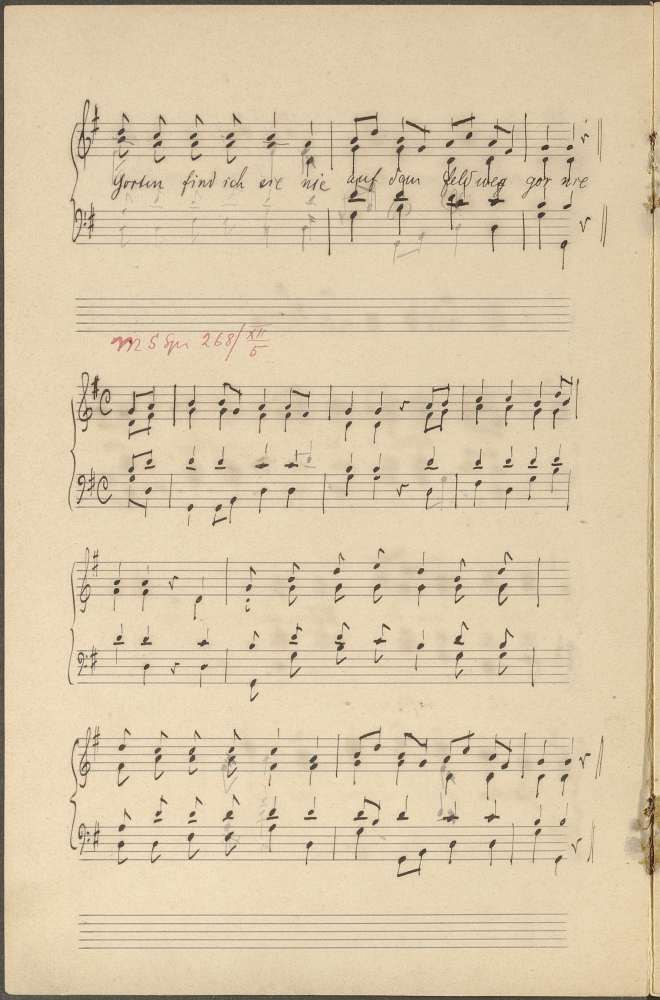 Garten find ich sie nie auf dem Feldweg gar nie
268/XII/5